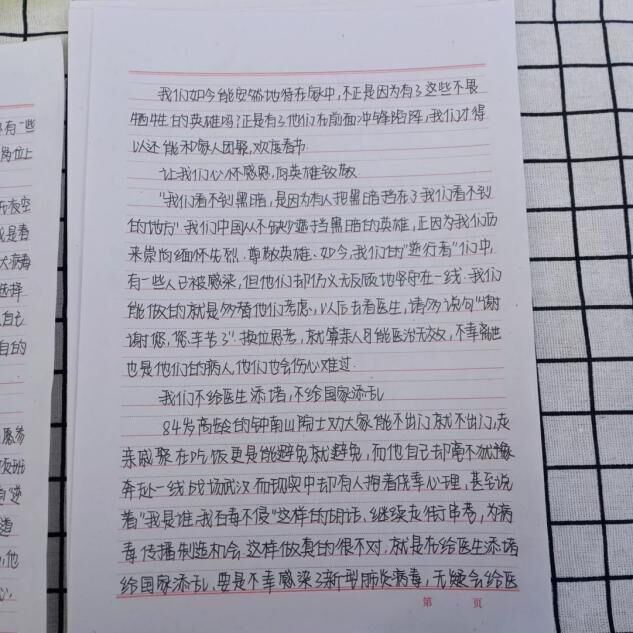 我们如今能安然地待在家中,不正是因为有了这些不畏
牺牲的英雄吗?正是有了他们在前面冲锋陷阵,我们才得
以还能和家人团聚,欢度春节.
让我们心怀感恩,向英雄致敬
"我们看不到黑暗,是因为有人把黑暗挡在了我们看不到
的地方".我们中国从不缺少遮挡黑暗的英雄,正因为我们历
来崇尚缅怀先烈、尊敬英雄、如今,我们的"逆行者"们中,
有一些人已被感染,但他们却仍义无反顾地坚守在一线.我们
能做的就是多替他们考虑,以后去看医生,请多说句"谢
谢您,您辛苦了".换位思考,就算亲人可能医治无效,不幸离世
也是他们的病人,他们也会伤心难过.
我们不给医生添堵,不给国家添乱
84岁高龄的钟南山院士劝大家能不出门就不出门,走
亲戚聚在吃饭更是能避免就避免,而他自己却毫不犹豫
奔赴一线战场武汉.而现实中却有人抱着侥幸心理,甚至说
着"我是谁,我百毒不侵"这样的胡话,继续走街串巷,为病
毒传播制造机会.这样做真的很不对,就是在给医生添堵
给国家添乱.要是不幸感染了新型肺炎病毒,无疑会给医
第 页
有一些
岗位上
夜空
是看
大病毒
选择
自己
自的
愿爹
夜班
逆
道
他
心,